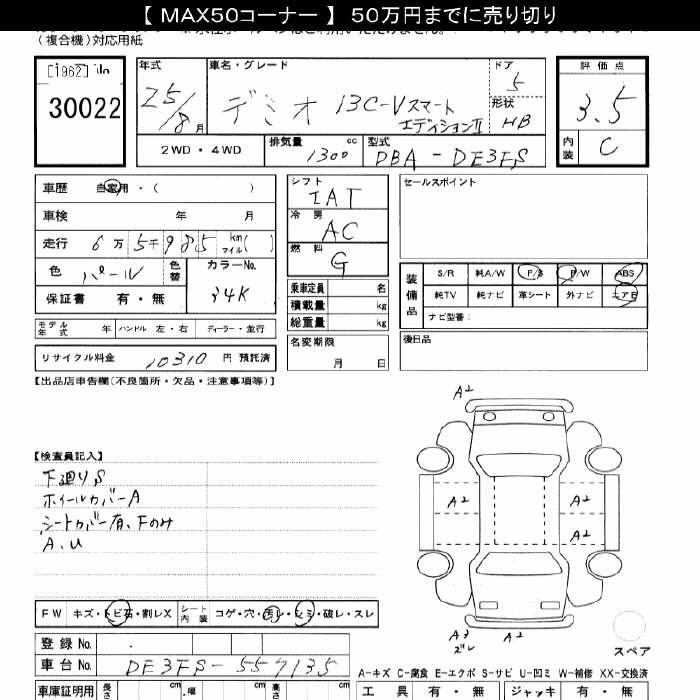 【 MAX50コーナー 】 50万円までに売り切り
（複合機）対応用紙
[1962]
30022
年式
25/8月
車名・グレード
デミオ 13C-Vスマート
エディションⅡ
ドア
5
形状
HB
評価点
3.5
内装
C
2WD・4WD
排気量
1300cc
型式
DBA-DE3FS
車歴 自家用・( )
車検 年 月
走行 6万5千985km マイル( )
色 パール
色替
カラーNo.
34K
保証書 有・無
シフト
IAT
冷房
AC
燃料
G
乗車定員 名
積載量 kg
総重量 kg
セールスポイント
装備品
S/R 純A/W P/S P/W ABS
純TV 純ナビ 革シート 外ナビ エアB
ナビ型番：
モデル年式 年 ハンドル 左・右 ディーラー・並行
リサイクル料金 10310 円 預託済
名変期限
月 日
後日品
【出品店申告欄(不良箇所・欠品・注意事項等)】
【検査員記入】
下廻りS
ホイールカバーA
シートカバー有、下のみ
A、U
A2
A2
A2
A2
A3
A2
スペア
FW キズ・トビ石・割レX
シート内装 コゲ・穴・汚レ・シミ・破レ・スレ
登録No.
車台No. DE3FS-557135
A-キズ C-腐食 E-エクボ S-サビ U-凹ミ W-補修 XX-交換済
車庫証明用 長さ cm 幅 cm 高さ cm
工具 有・無 ジャッキ 有・無